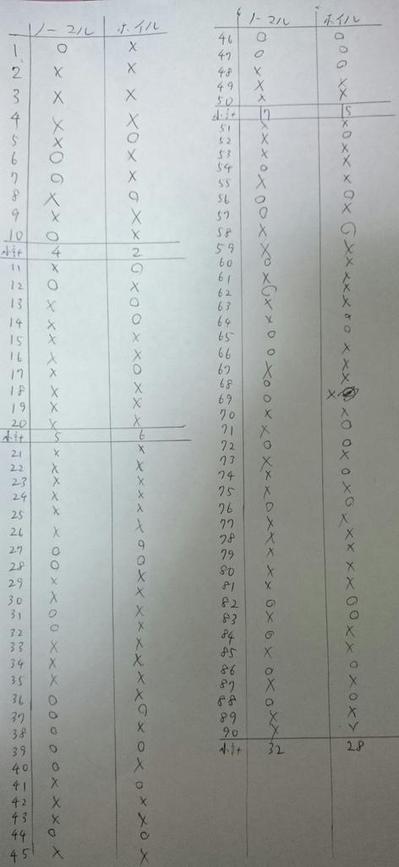 ノーマル ホイル
1 ○ ×
2 × ×
3 × ×
4 × ×
5 × ○
6 ○ ×
7 ○ ×
8 × ○
9 × ×
10 ○ ×
小計 4 2
11 × ○
12 ○ ×
13 × ○
14 × ○
15 × ×
16 × ×
17 × ○
18 × ×
19 × ×
20 × ×
小計 5 6
21 × ×
22 × ×
23 × ×
24 × ×
25 × ×
26 × ×
27 ○ ○
28 ○ ○
29 × ×
30 × ×
31 ○ ×
32 ○ ×
33 × ×
34 × ×
35 × ×
36 ○ ×
37 ○ ○
38 ○ ×
39 ○ ○
40 ○ ×
41 × ○
42 × ×
43 × ×
44 ○ ○
45 × ×
ノーマル ホイル
46 ○ ○
47 ○ ○
48 × ○
49 × ×
50 × ×
小計 17 15
51 × ×
52 × ○
53 × ×
54 ○ ×
55 × ×
56 ○ ○
57 ○ ×
58 × ○
59 × ×
60 ○ ×
61 × ×
62 ○ ×
63 × ×
64 × ○
65 ○ ○
66 ○ ×
67 × ×
68 ○ ×
69 ○ ×
70 × ×
71 × ○
72 ○ ○
73 × ×
74 × ○
75 × ×
76 ○ ○
77 × ×
78 × ×
79 × ×
80 × ×
81 × ×
82 ○ ○
83 × ○
84 ○ ×
85 × ×
86 ○ ○
87 × ×
88 ○ ○
89 × ×
90 × ×
小計 32 28